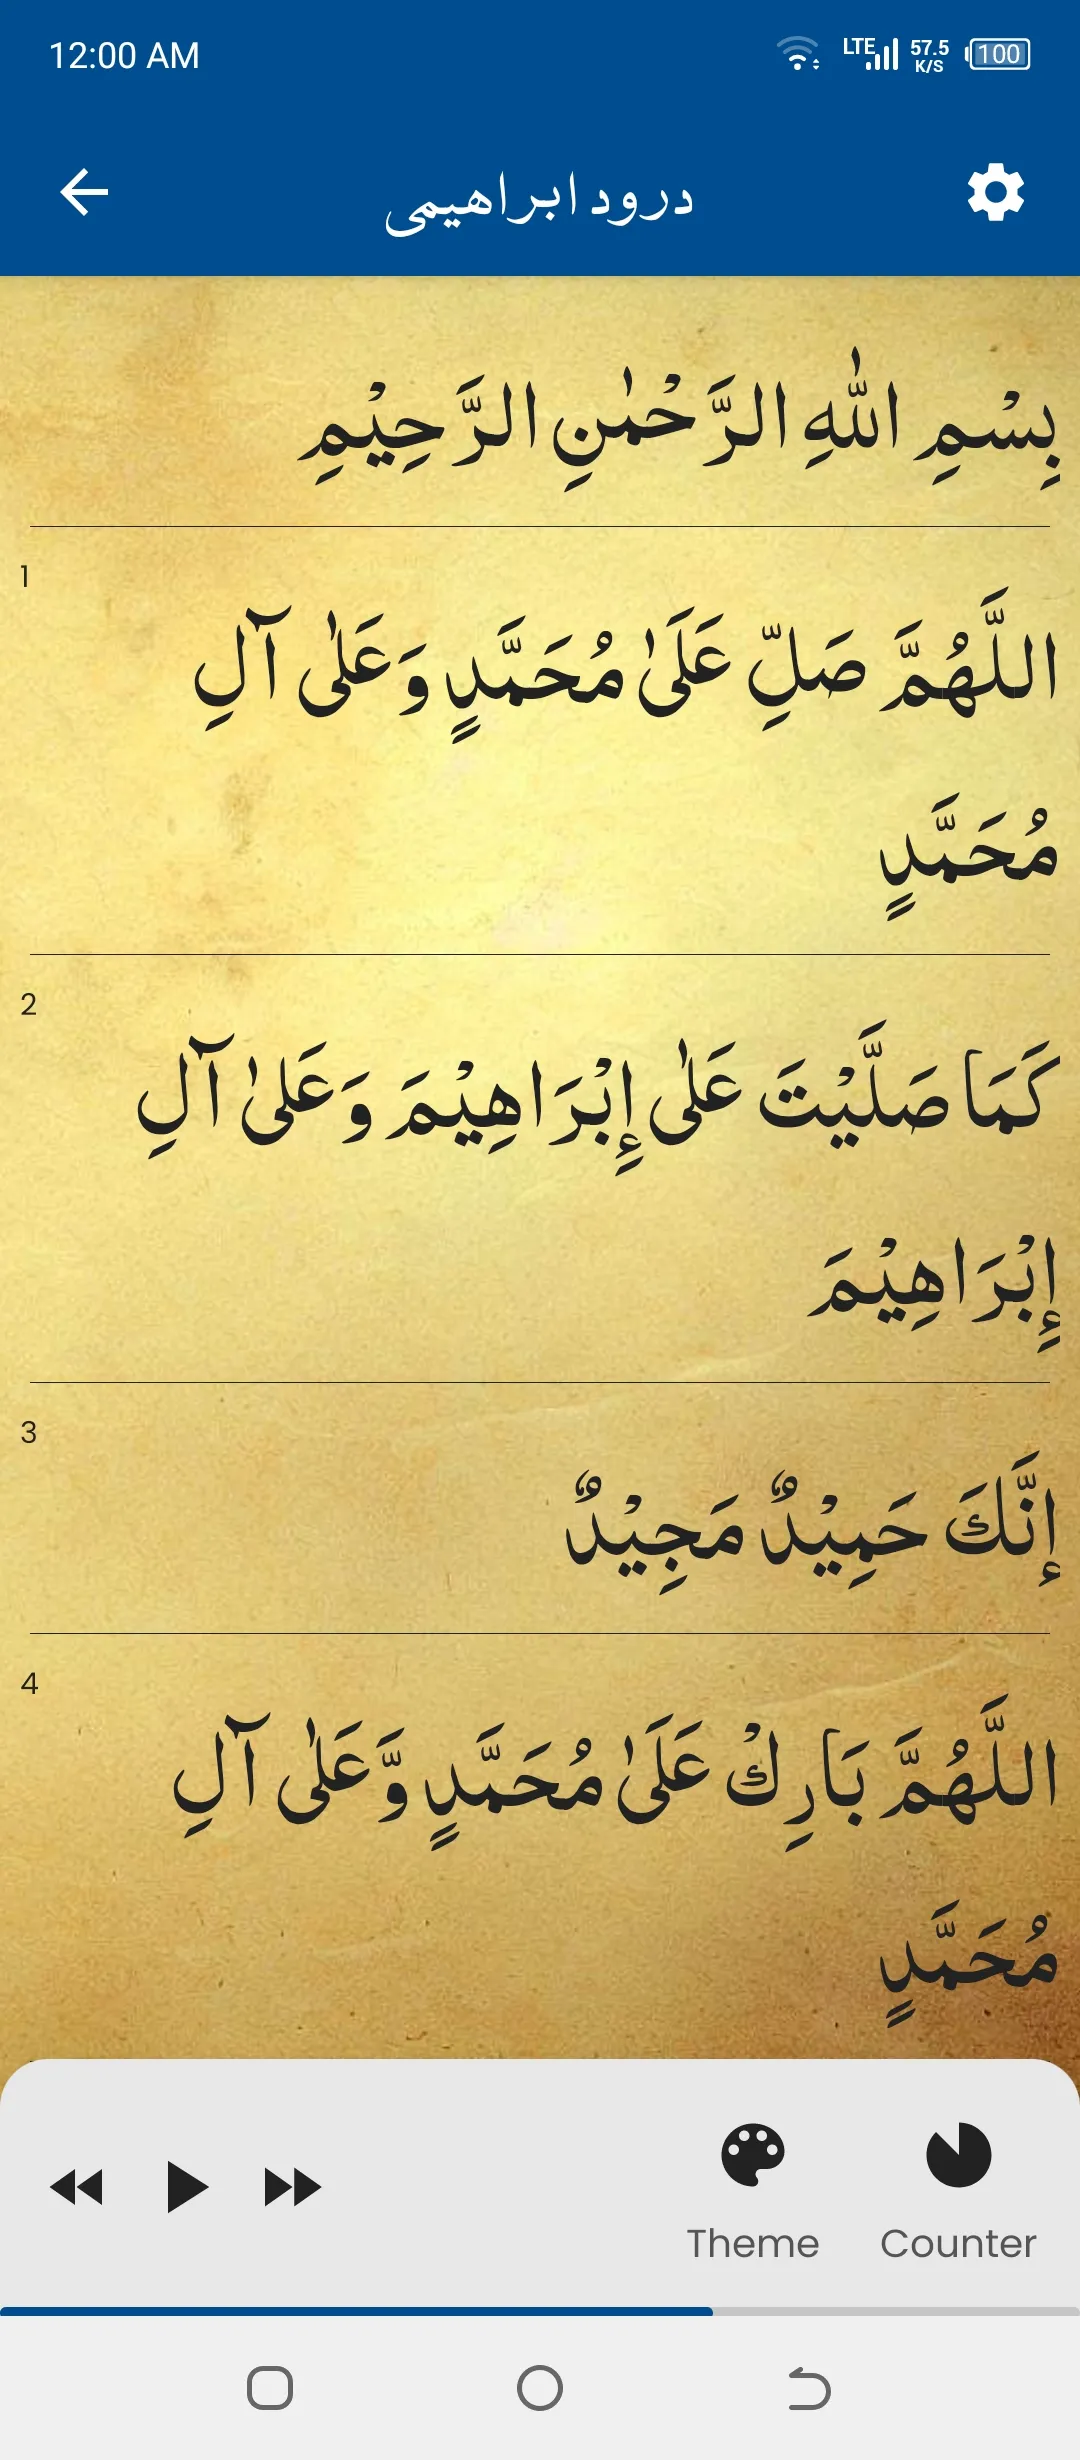 12:00 AM LTE 57.5 K/S 100
درود ابراهیمی
بِسْمِ اللّٰهِ الرَّحْمٰنِ الرَّحِيْمِ
1
اللَّهُمَّ صَلِّ عَلَىٰ مُحَمَّدٍ وَعَلٰى آلِ
مُحَمَّدٍ
2
كَمَا صَلَّيْتَ عَلٰى إِبْرَاهِيْمَ وَعَلىٰ آلِ
إِبْرَاهِيْمَ
3
إِنَّكَ حَمِيْدٌ مَجِيْدٌ
4
اللَّهُمَّ بَارِكْ عَلَىٰ مُحَمَّدٍ وَّعَلٰى آلِ
مُحَمَّدٍ
Theme Counter